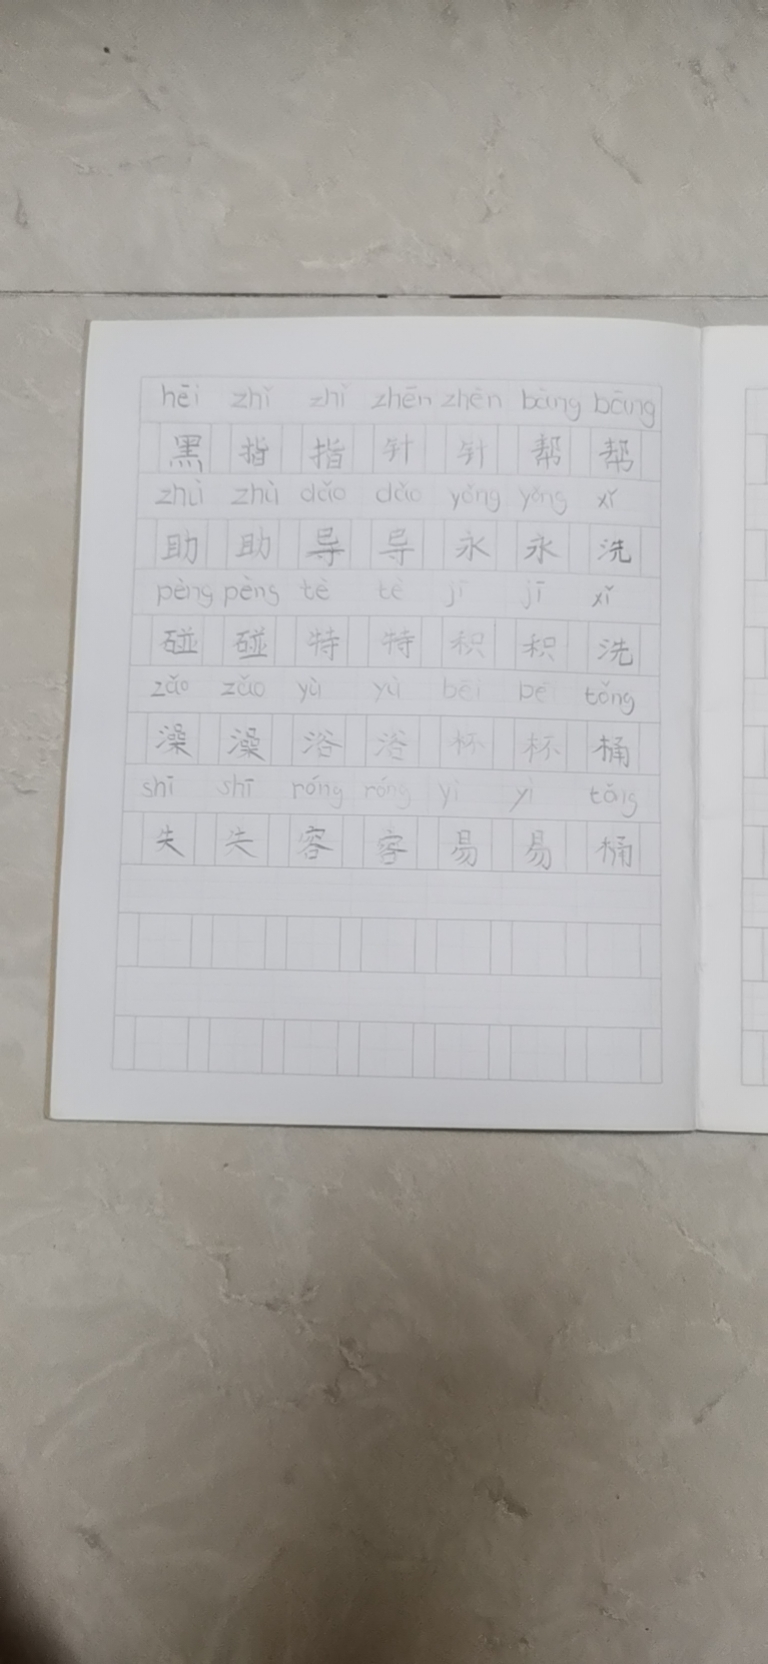 hēi zhǐ zhǐ zhēn zhēn bāng bāng
黑 指 指 针 针 帮 帮
zhù zhù dǎo dǎo yǒng yǒng xǐ
助 助 导 导 永 永 洗
pèng pèng tè tè jī jī xǐ
碰 碰 特 特 积 积 洗
zǎo zǎo yù yù bēi bēi tǒng
澡 澡 浴 浴 杯 杯 桶
shī shī róng róng yì yì
失 失 容 容 易 易 桶